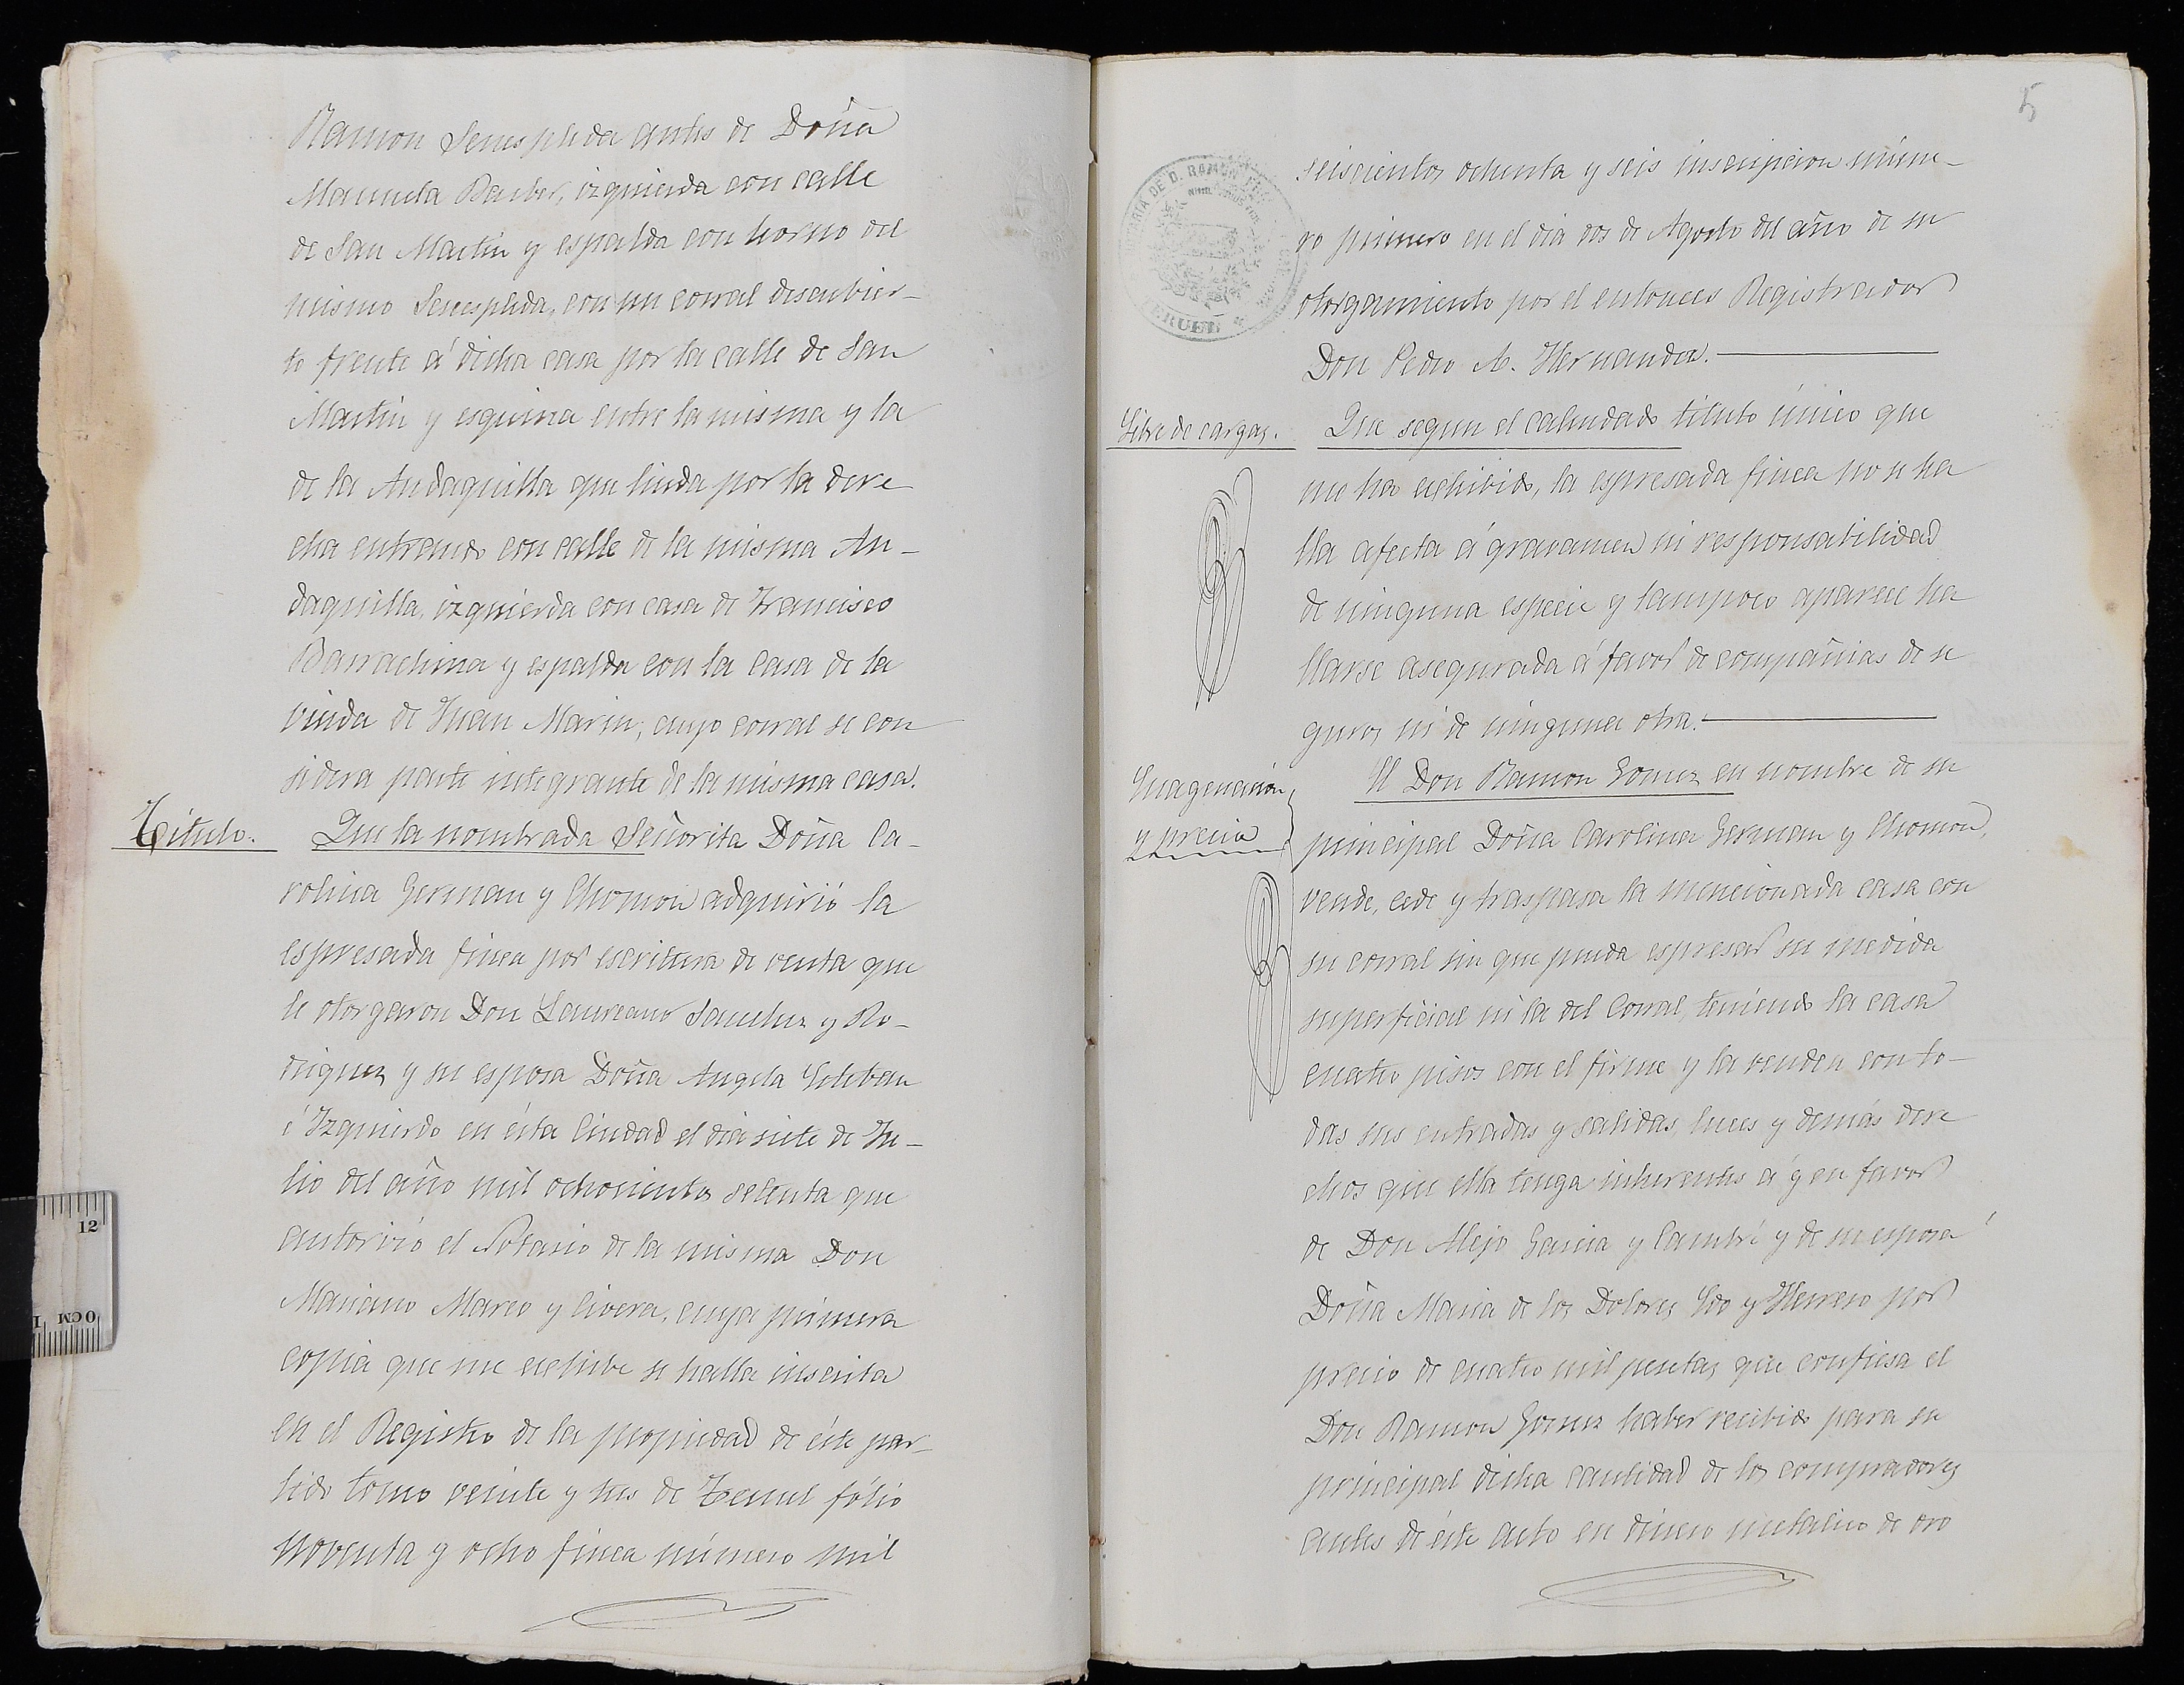 Ramon Senesplida antes de Doña
Manuela Barber, izquierda con calle
de San Martin y espalda con horno del
mismo Senesplida, con un corral descubier-
to frente á dicha casa por la calle de San
Martin y esquina entre la misma y la
de la Andaquilla que linda por la dere
cha entrando con calle de la misma An-
daquilla, izquierda con casa de Francisco
Barrachina y espalda con la casa de la
viuda de Juan Marin, cuyo corral se con
sidera parte integrante de la misma casa.
Titulo. Que la nombrada Señorita Doña Ca-
rolina German y Chomon adquirió la
espresada finca por escritura de venta que
le otorgaron Don Laureano Sanchez y Ro-
driguez y su esposa Doña Angela Esteban
é Izquierdo en ésta Ciudad el dia siete de Ju-
lio del año mil ochocientos setenta que
autorizó el Notario de la misma Don
Mariano Marco y Civera, cuya primera
copia que me exhibe se halla inscrita
en el Registro de la propiedad de éste par-
tido tomo veinte y tres de Teruel fólio
noventa y ocho finca número mil
5
seiscientos ochenta y seis inscripcion núme-
ro primero en el dia dos de Agosto del año de su
otorgamiento por el entonces Registrador
Don Pedro A. Hernandez.
Libre de cargas. Que segun el calendado título único que
me ha exhibido, la espresada finca no se ha
lla afecta á gravamen ni responsabilidad
de ninguna especie y tampoco aparece ha
llarse asegurada á favor de compañias de se
guros ni de ninguna otra.
Enagenacion El Don Ramon Gomez en nombre de su
y precio principal Doña Carolina German y Chomon,
vende, cede y traspasa la mencionada casa con
su corral sin que pueda espresar su medida
superficial ni la del Corral, teniendo la casa
cuatro pisos con el firme y la venden con to-
das sus entradas y salidas, luces y demás dere
chos que ella tenga inherentes á y en favor
de Don Alejo Garcia y Cambré y de su esposa
Doña Maria de los Dolores Edo y Herrero por
precio de cuatro mil pesetas que confiesa el
Don Ramon Gomez haber recibido para su
principal dicha cantidad de los compradores
antes de éste acto en dinero metalico de oro